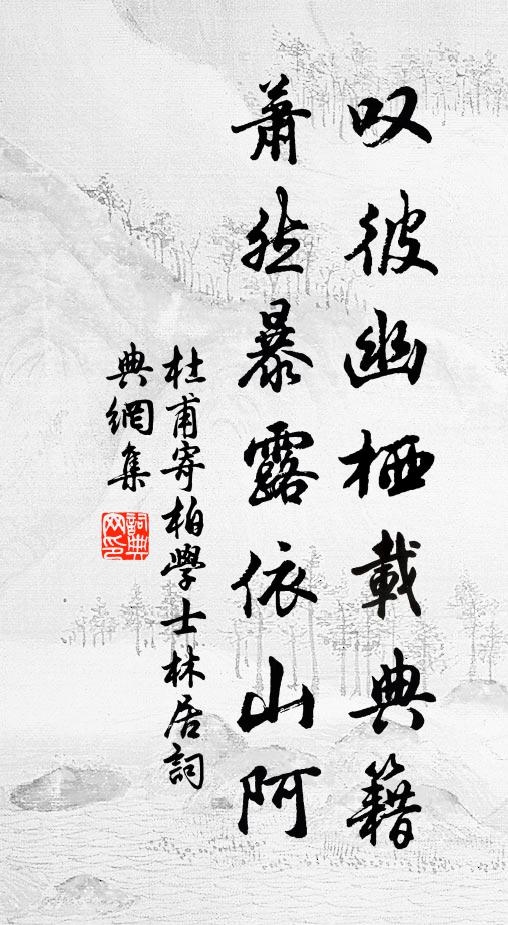 叹彼幽栖載典籍
蕭然暴露依山阿
杜甫寄柏學士林居詞
典網集
詞典網印